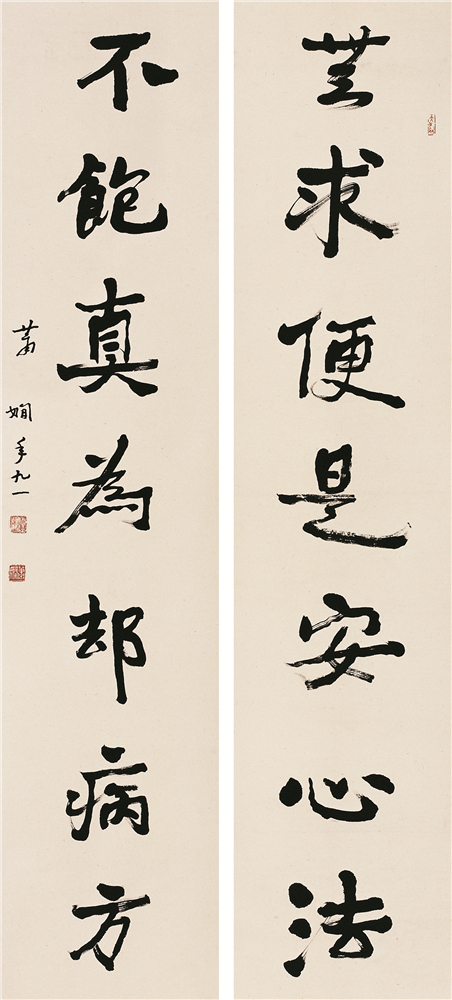 無求便是安心法
不飽真為却病方
蕭嫻年九一